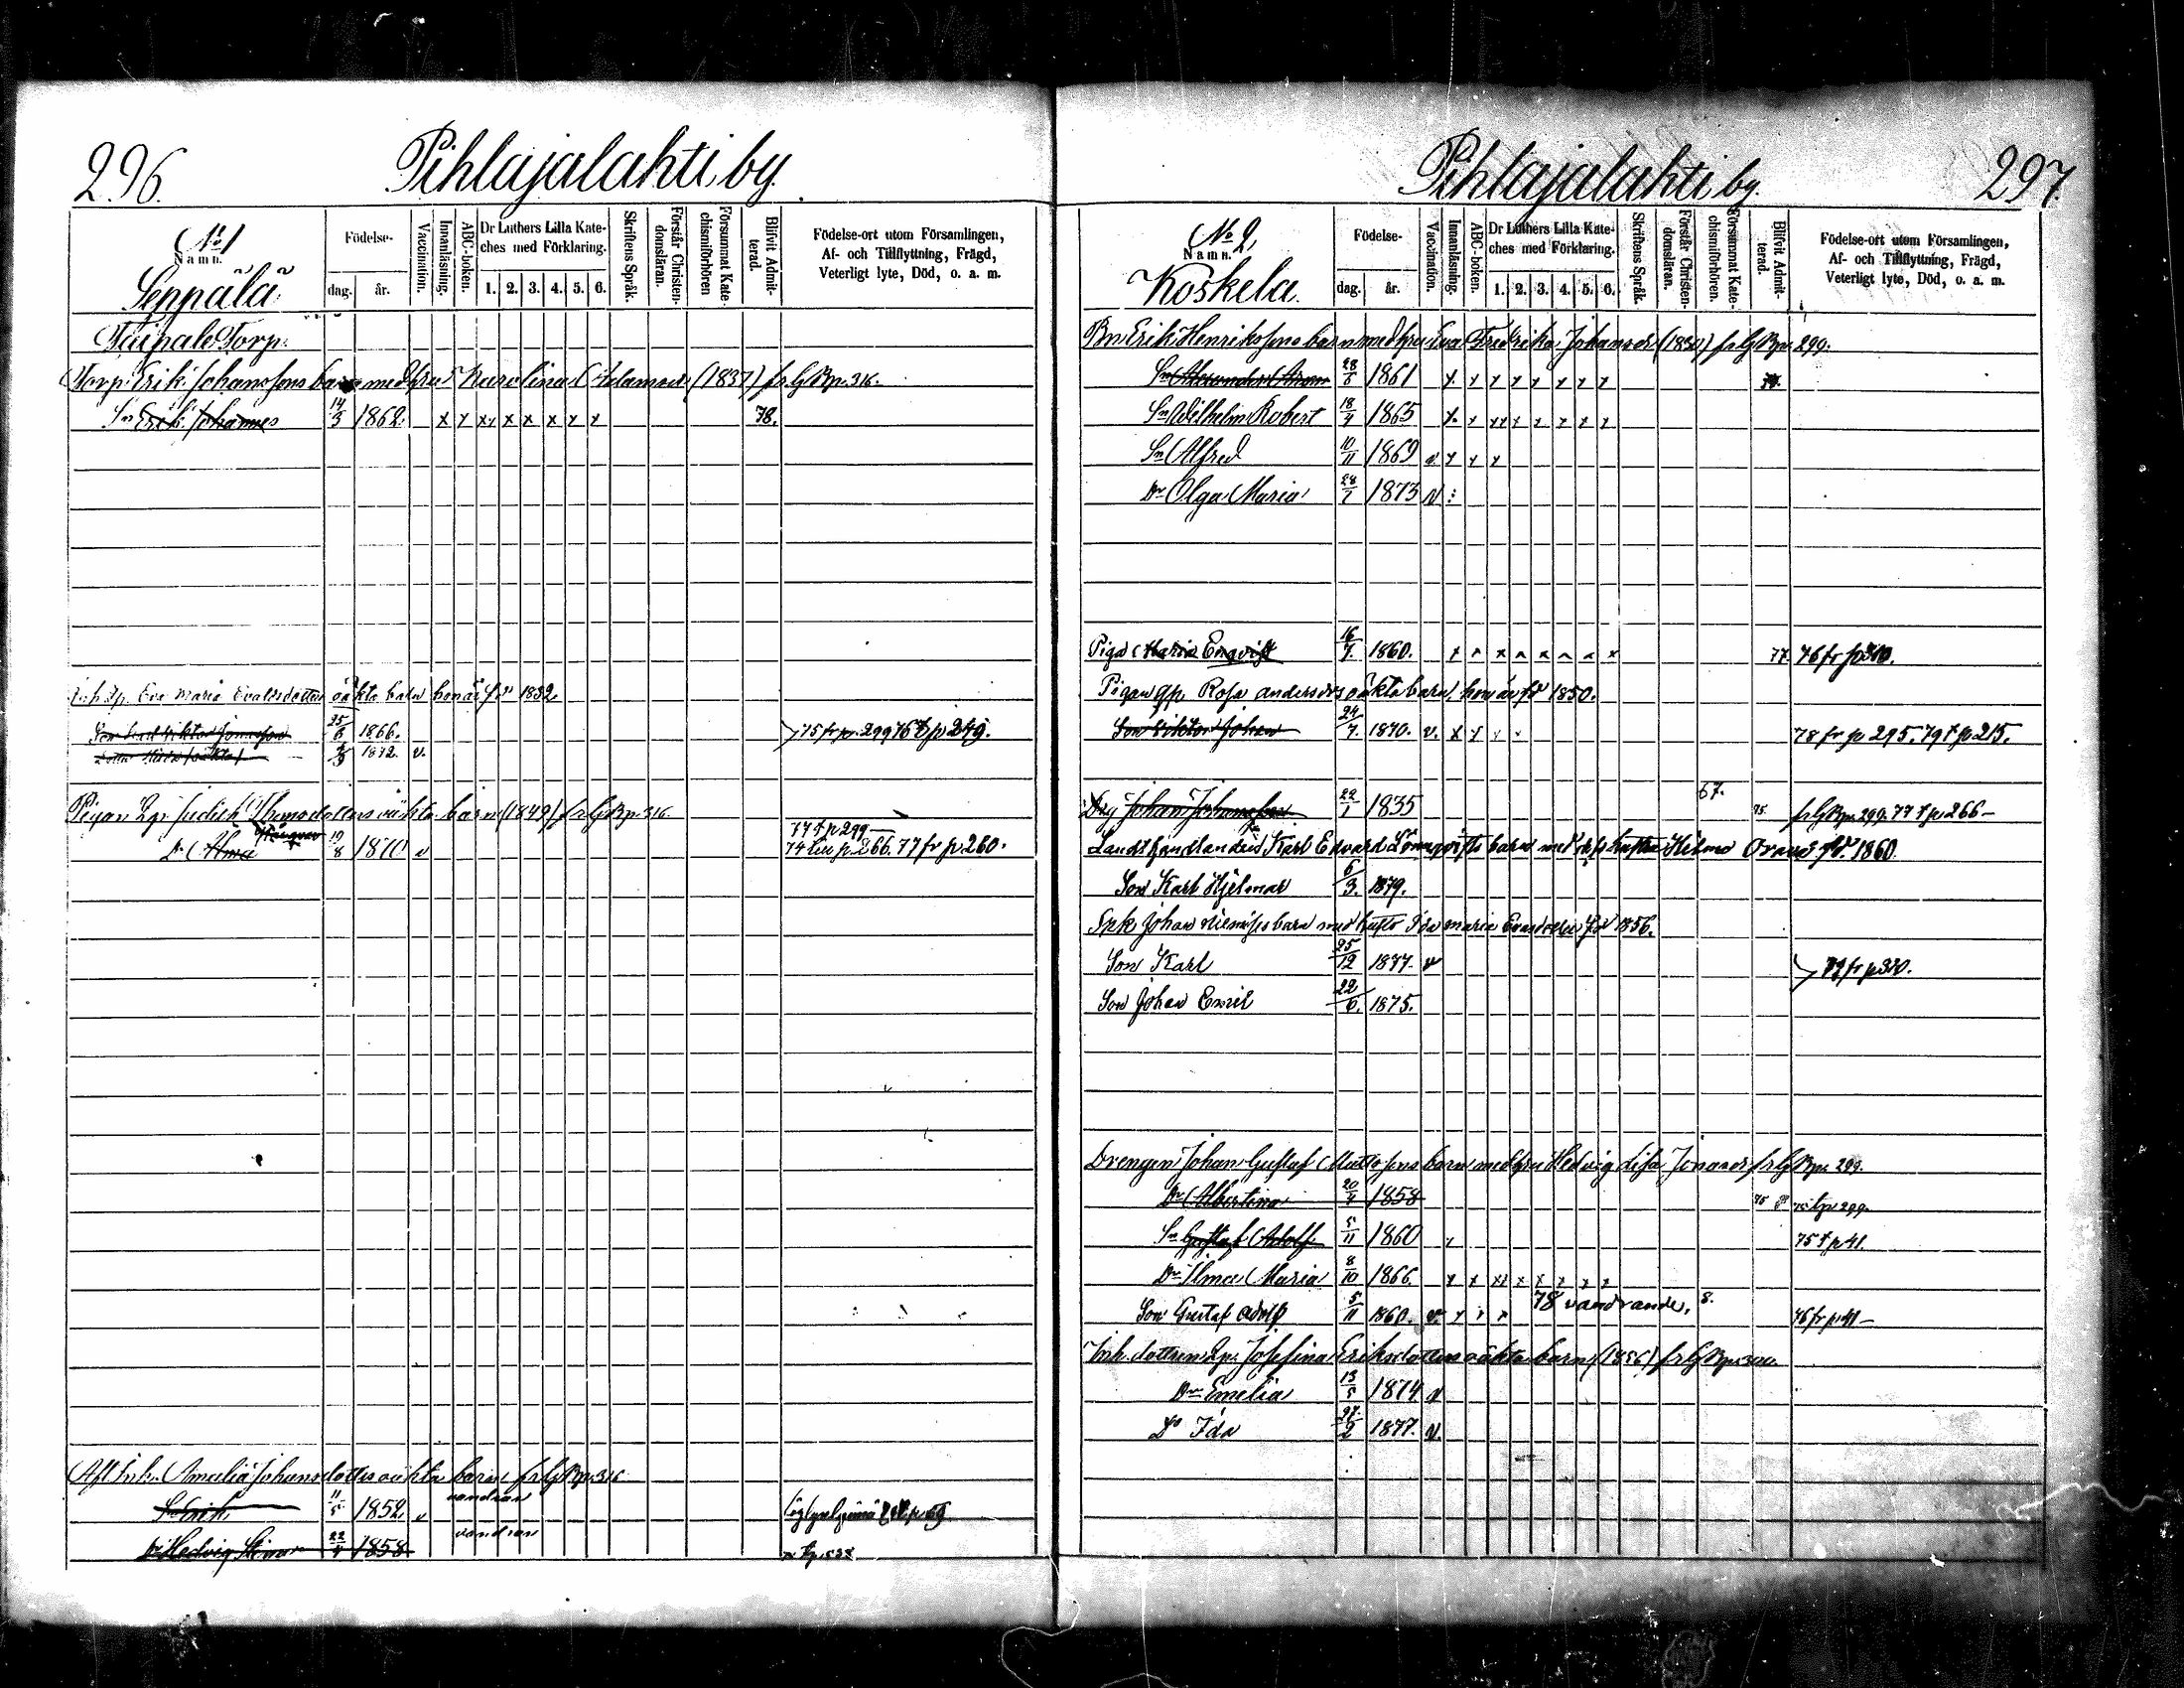 296.
Pihlajalahti by.
No 1
Namn.
Seppälä
Födelse-
dag.
år.
Vaccination.
Innanläsning.
ABC-boken.
Dr Luthers Lilla Kate-
ches med Förklaring.
1. 2. 3. 4. 5. 6.
Skriftens Språk.
Förstår Christen-
domsläran.
Försummat Kate-
chismiförhören
Blifvit Admit-
terad.
Födelse-ort utom Församlingen,
Af- och Tillflyttning, Frägd,
Veterligt lyte, Död, o. a. m.
Taipale Torp.
Torp. Erik Johanssons barn med hru Karolina Adamsdr (1837) fr lg Bp. 316.
Sn Erik Johannes 14/3 1862. x x xx x x x x x 78.
Eva Maria Evaldsdotter oäkta barn hon är fd 1832
Son Karl Viktor Jonasson 25/6 1866. 75 fr p. 299 76 t p 249.
1872. v.
Pigan Lgr Judith Thomsdotters oäkta barn (1849) fr lg Bp. 316.
77 t p 299
Dr Alma 19/8 1870 v 74 t p. 266. 77 fr p 260.
Afl Inh. Amalia Johansdotters oäkta barn fr lg Bp. 316
Sn Erik 11/5 1852. v
Dr Hedvig Stina 22/4 1858
297.
Pihlajalahti by.
No 2.
Namn.
Koskela.
Födelse-
dag.
år.
Vaccination.
Innanläsning.
ABC-boken.
Dr Luthers Lilla Kate-
ches med Förklaring.
1. 2. 3. 4. 5. 6.
Skriftens Språk.
Förstår Christen-
domsläran.
Försummat Kate-
chismiförhören.
Blifvit Admit-
terad.
Födelse-ort utom Församlingen,
Af- och Tillflyttning, Frägd,
Veterligt lyte, Död, o. a. m.
Bn Erik Henrikssons barn med hru Eva Fredrika Johansdr (1830) fr lg Bp. 299.
Sn Alexander 28/5 1861 x x x x x x x x
Sn Wilhelm Robert 18/4 1865 x x xx x x x x x
Sn Alfred 10/11 1869 v. x x x
Dr Olga Maria 28/1 1873 v.
Pigan Maria Enqvist 16/7. 1860. x x x x x x x x 77 76 fr p 310.
Pigan gp Rosa andersdrs oäkta barn, hon är fd 1850.
Son Viktor Johan 24/7. 1870. v. x x x x 78 fr p 295. 79 t p 215.
67.
Drg Johan Johansson 22/1 1835 75. fr lg Bp. 299. 77 t p 266
Landthandlanden Karl Edvard Lönnqvists barn med dess hustru Hilma fd. 1860.
Son Karl Hjelmar 6/3. 1879.
Johan barn med hustr Ida Maria fd 1856.
Son Karl 25/12 1877. v
Son Johan Emil 22/6. 1875.
Drengen Johan Gustaf Mattssons barn med hru Hedvig Lisa Jonasdr fr lg Bp. 299.
Dr Albertina 20/4 1858 75 t p 299.
Sn Gustaf Adolf 5/11 1860 x 75 t p 41.
Dr Ilma Maria 8/10 1866 x x xx x x x x x
Son Gustaf Adolf 5/11 1860. v. x x x 78 vandrande, 8. 76 fr p 41
Inh. dottren Lgr. Josefina Eriksdotters oäkta barn (1856) fr lg Bp. 300.
Dr Emelia 13/5 1874 v
Dr Ida 27/2 1877. v.